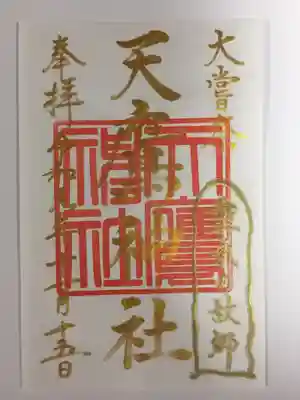 大嘗祭
天鷹神社
奉拝 令和元年十一月十五日
天鷹
神社